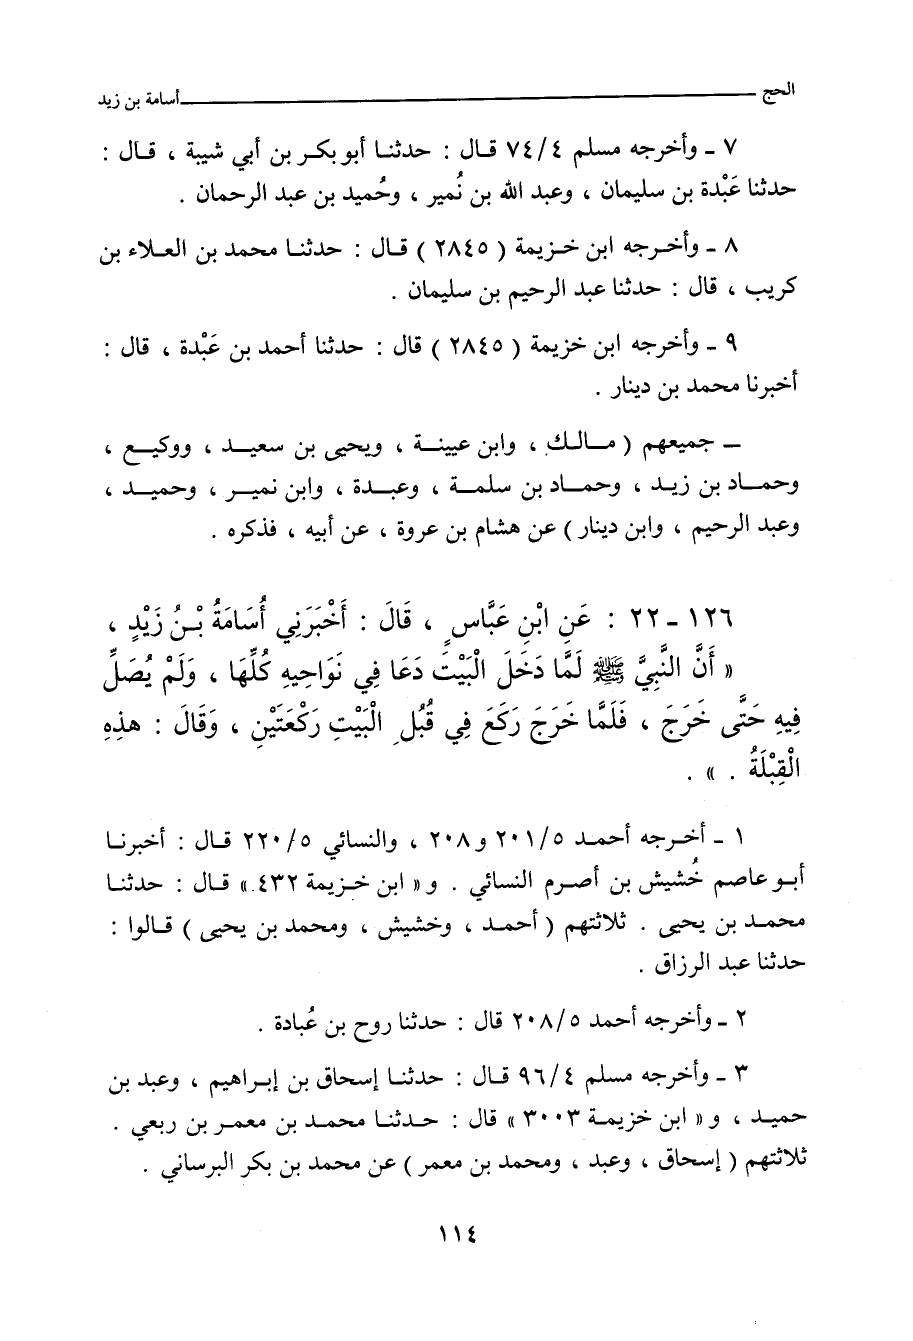 الحج ــــــــ أسامة بن زيد
٧ ـ وأخرجه مسلم ٧٤/٤ قال : حدثنا أبو بكر بن أبي شيبة ، قال :
حدثنا عَبْدة بن سليمان ، وعبد الله بن نُمير ، وحُميد بن عبد الرحمان .
٨ ـ وأخرجه ابن خزيمة ( ٢٨٤٥ ) قال : حدثنا محمد بن العلاء بن
كريب ، قال : حدثنا عبد الرحيم بن سليمان .
٩ ـ وأخرجه ابن خزيمة ( ٢٨٤٥ ) قال : حدثنا أحمد بن عَبْدة ، قال :
أخبرنا محمد بن دينار .
ـ جميعهم ( مالك ، وابن عيينة ، ويحيى بن سعيد ، ووكيع ،
وحماد بن زيد ، وحماد بن سلمة ، وعبدة ، وابن نمير ، وحميد ،
وعبد الرحيم ، وابن دينار ) عن هشام بن عروة ، عن أبيه ، فذكره .
١٢٦ ـ ٢٢ : عَنِ ابْنِ عَبَّاسٍ ، قَالَ : أَخْبَرَنِي أُسَامَةُ بْنُ زَيْدٍ ،
« أَنَّ النَّبِيَّ ﷺ لَمَّا دَخَلَ الْبَيْتَ دَعَا فِي نَوَاحِيهِ كُلِّهَا ، وَلَمْ يُصَلِّ
فِيهِ حَتَّى خَرَجَ ، فَلَمَّا خَرَجَ رَكَعَ فِي قُبُلِ الْبَيْتِ رَكْعَتَيْنِ ، وَقَالَ : هذِهِ
الْقِبْلَةُ . » .
١ ـ أخرجه أحمد ٢٠١/٥ و٢٠٨ ، والنسائي ٢٢٠/٥ قال : أخبرنا
أبو عاصم خُشيش بن أصرم النسائي . و« ابن خزيمة ٤٣٢ » قال : حدثنا
محمد بن يحيى . ثلاثتهم ( أحمد ، وخشيش ، ومحمد بن يحيى ) قالوا :
حدثنا عبد الرزاق .
٢ ـ وأخرجه أحمد ٢٠٨/٥ قال : حدثنا روح بن عُبادة .
٣ ـ وأخرجه مسلم ٩٦/٤ قال : حدثنا إسحاق بن إبراهيم ، وعبد بن
حميد ، و« ابن خزيمة ٣٠٠٣ » قال : حدثنا محمد بن معمر بن ربعي .
ثلاثتهم ( إسحاق ، وعبد ، ومحمد بن معمر ) عن محمد بن بكر البرساني .
١١٤